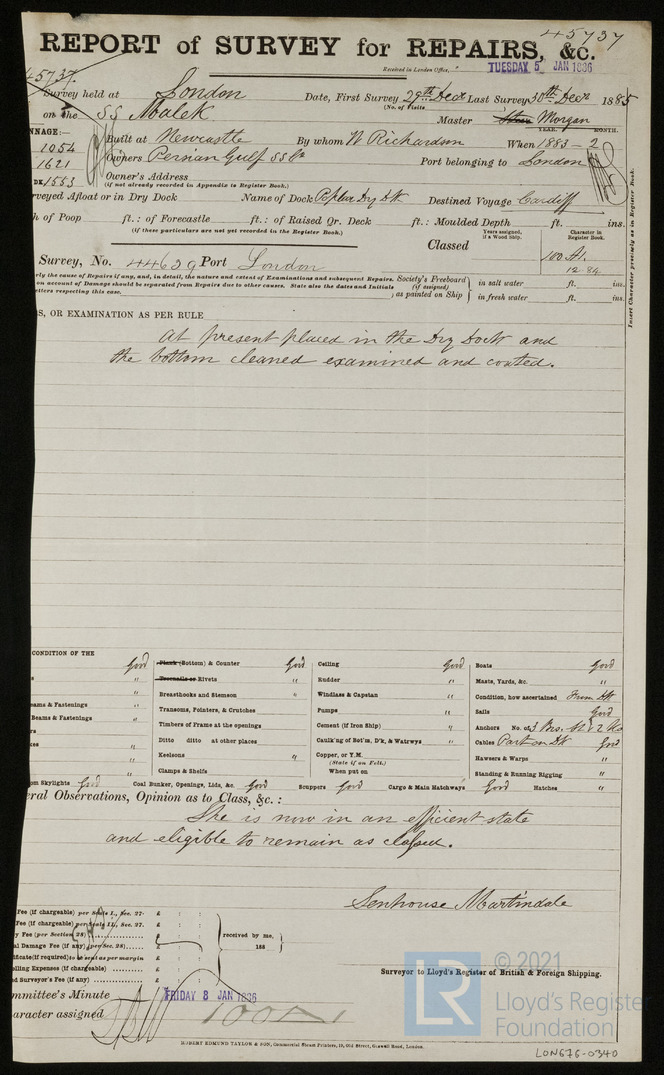 45737
REPORT of SURVEY for REPAIRS, &c.
45737.
Received in London Office,
TUESDAY 5 JAN 1886
Survey held at London
Date, First Survey 29th Decr Last Survey 30th Decr 1885
(No. of Visits
on the SS Malek
Master Morgan
YEAR. MONTH.
NNAGE:—
1054
1621
DK 1553
Built at Newcastle By whom W Richardson When 1883-2
Owners Persian Gulf SS Co Port belonging to London
Owner's Address
(if not already recorded in Appendix to Register Book.)
rveyed Afloat or in Dry Dock Name of Dock Poplar Dry Dk Destined Voyage Cardiff
h of Poop ft.: of Forecastle ft.: of Raised Qr. Deck ft.: Moulded Depth ft. ins.
(if these particulars are not yet recorded in the Register Book.)
Classed
Years assigned, if a Wood Ship.
Character in Register Book.
100 A1.
12-84
Survey, No. 44629 Port London
rly the cause of Repairs if any, and, in detail, the nature and extent of Examinations and subsequent Repairs.
on account of Damage should be separated from Repairs due to other causes. State also the dates and Initials
etters respecting this case.
Society's Freeboard (if assigned) as painted on Ship
in salt water ft. ins.
in fresh water ft. ins.
Insert Character precisely as in Register Book.
S, OR EXAMINATION AS PER RULE
At present placed in the Dry Dock and
the bottom cleaned examined and coated.
CONDITION OF THE
Good
"
eams & Fastenings "
Beams & Fastenings "
rs "
kes "
"
"
om Skylights Good
Plank (Bottom) & Counter Good
Treenails or Rivets "
Breasthooks and Stemson "
Transoms, Pointers, & Crutches
Timbers of Frame at the openings
Ditto ditto at other places
Keelsons "
Clamps & Shelfs
Coal Bunker, Openings, Lids, &c. Good
Ceiling Good
Rudder "
Windlass & Capstan "
Pumps "
Cement (if Iron Ship) "
Caulk'ng of Bot'm, D'k, & Watrwys "
Copper, or Y.M.
(State if on Felt.)
When put on
Scuppers Good Cargo & Main Hatchways Good Hatches "
Boats Good
Masts, Yards, &c. "
Condition, how ascertained From Dk
Sails Good
Anchors No. of 3 Brs.
Cables Part on Dk Good
Hawsers & Warps "
Standing & Running Rigging "
ral Observations, Opinion as to Class, &c.:
She is now in an efficient state
and eligible to remain as classed.
Senhouse Martindale
Surveyor to Lloyd's Register of British & Foreign Shipping.
Fee (if chargeable) per Scale I., Sec. 27. £ : :
Fee (if chargeable) per Scale II., Sec. 27. £ : :
y Fee (per Section 28) £ : :
al Damage Fee (if any) (per Sec. 28) £ : :
ificate (if required) to be sent as per margin
lling Expenses (if chargeable) £ : :
ed Surveyor's Fee (if any) £ : :
received by me,
188
mmittee's Minute
FRIDAY 8 JAN 1886
aracter assigned 100A1
ROBERT EDMUND TAYLOR & SON, Commercial Steam Printers, 19, Old Street, Goswell Road, London.
LR
© 2021
Lloyd's Register
Foundation
LON676-0340